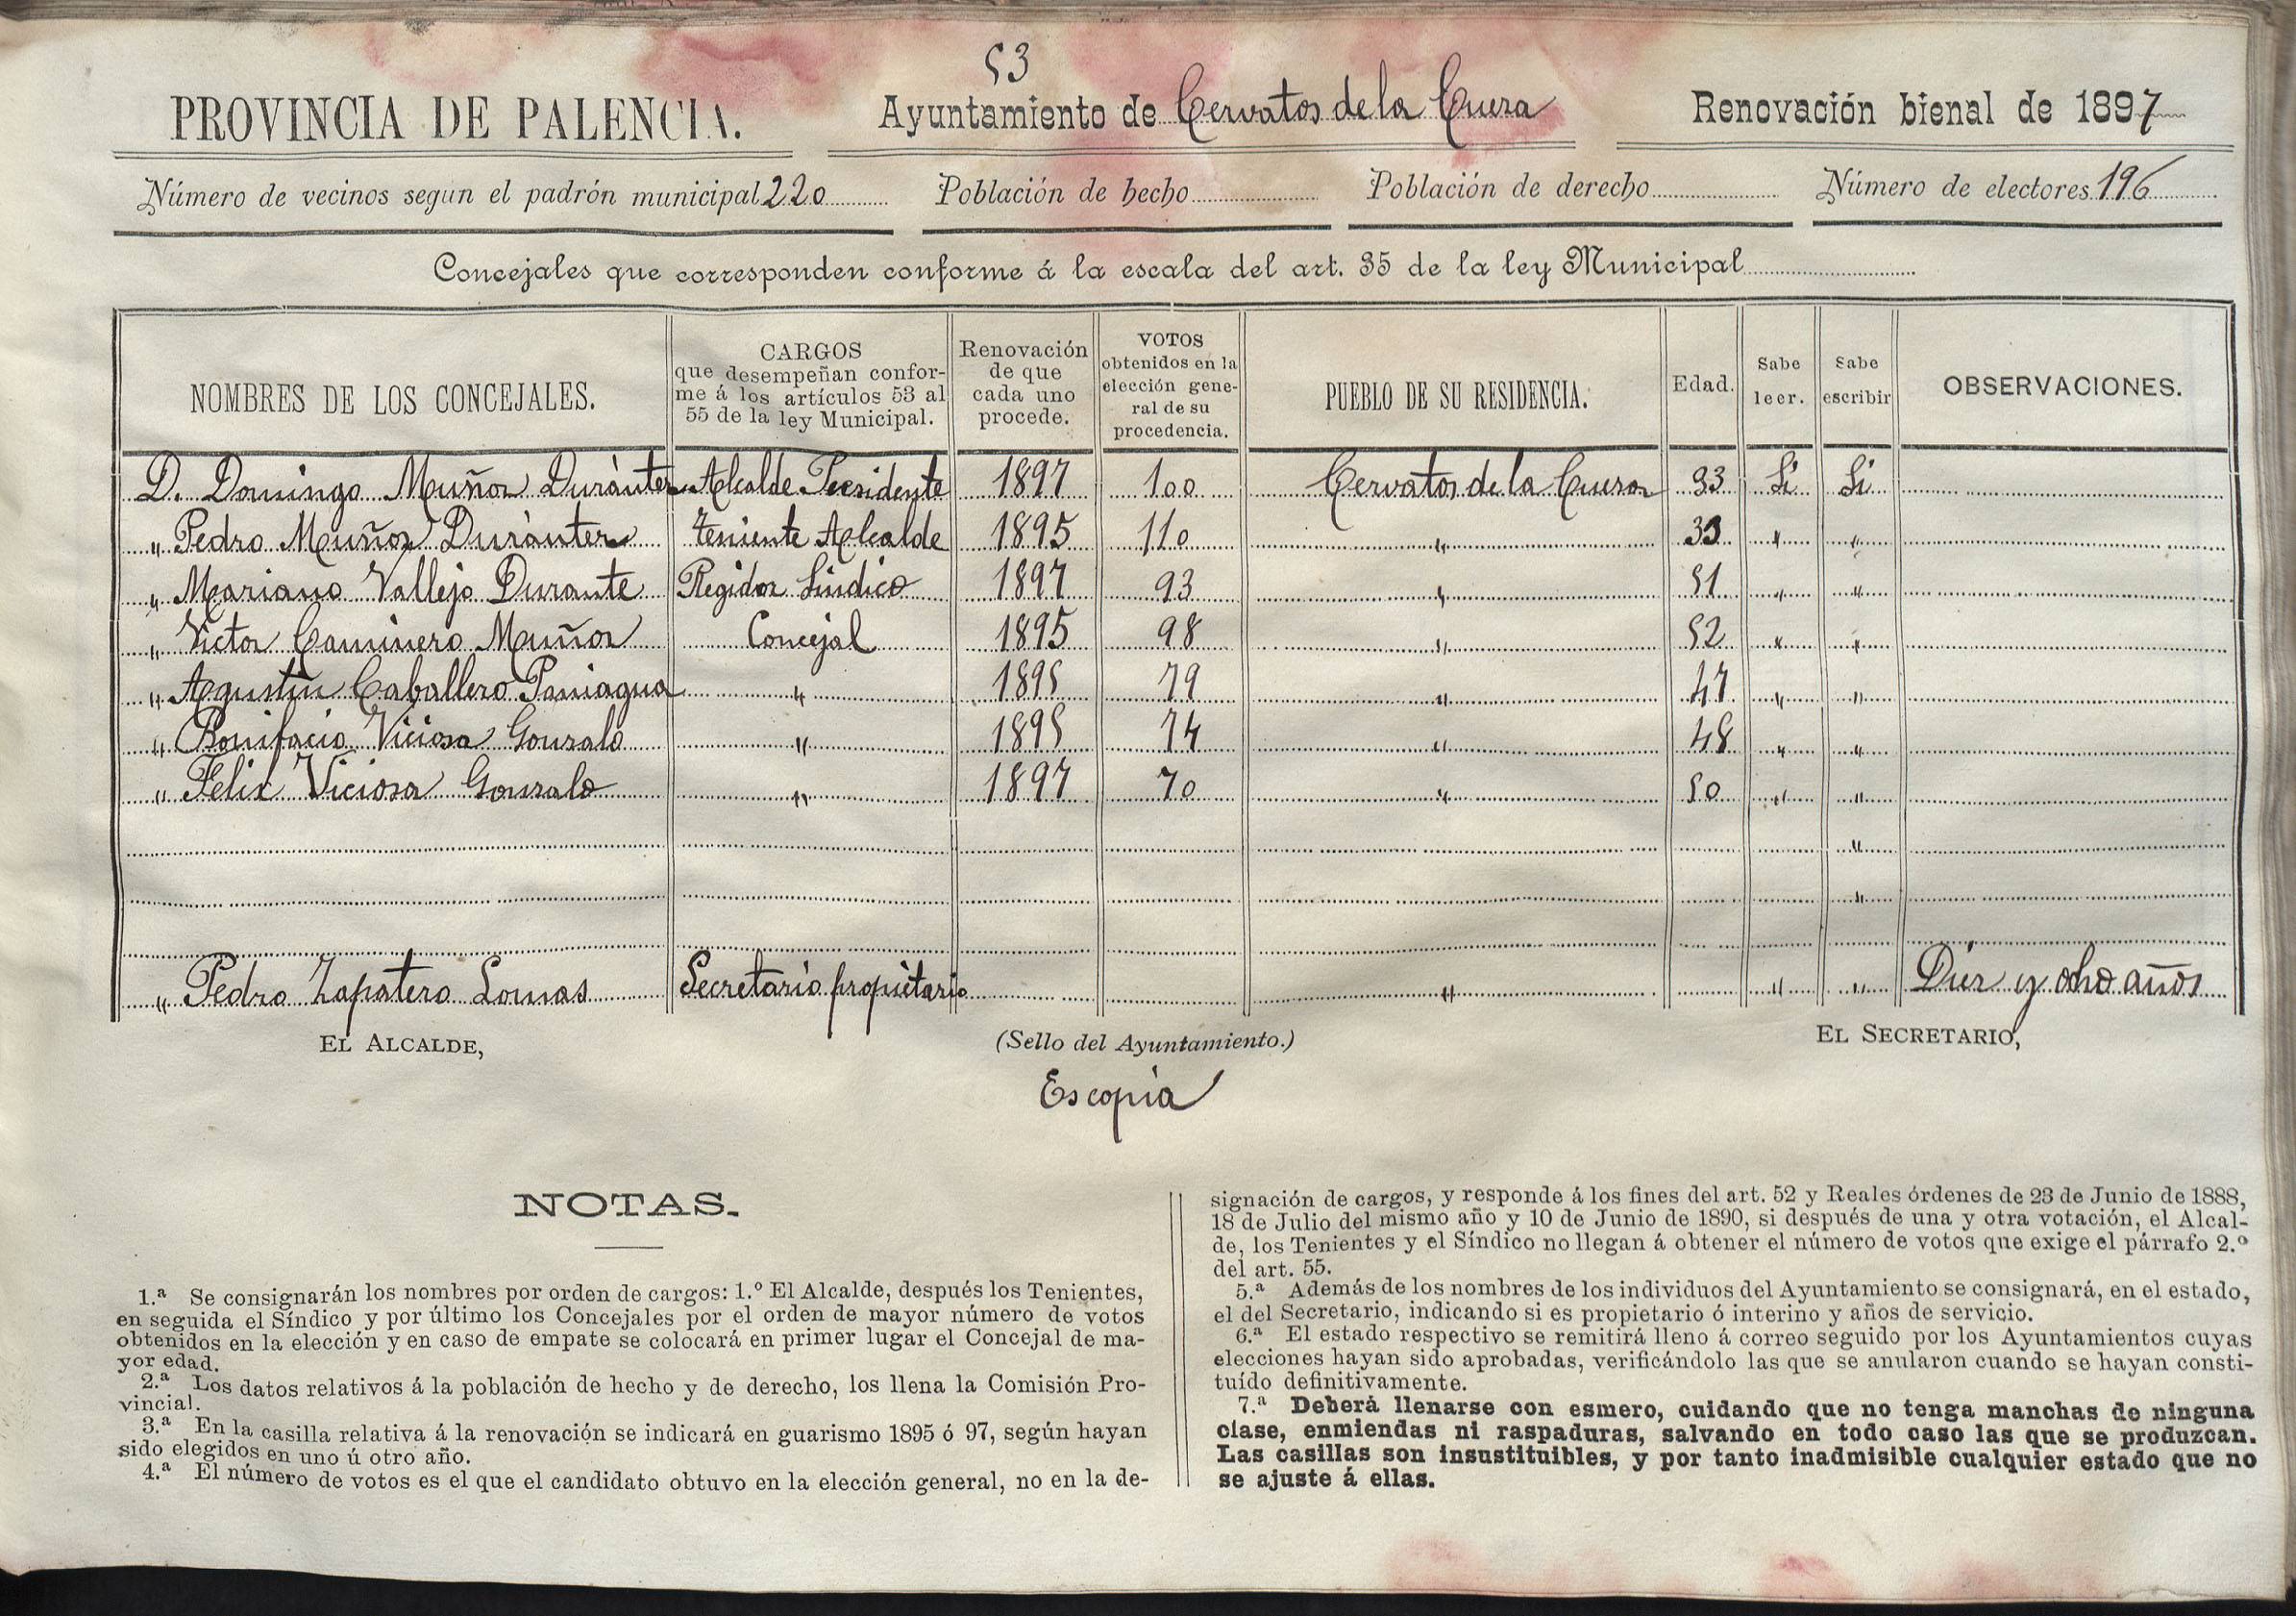 53
PROVINCIA DE PALENCIA. Ayuntamiento de Cervatos de la Cueza Renovación bienal de 1897
Número de vecinos según el padrón municipal 220 Población de hecho Población de derecho Número de electores 196
Concejales que corresponden conforme á la escala del art. 35 de la ley Municipal
NOMBRES DE LOS CONCEJALES. CARGOS que desempeñan conforme á los artículos 53 al 55 de la ley Municipal. Renovación de que cada uno procede. VOTOS obtenidos en la elección general de su procedencia. PUEBLO DE SU RESIDENCIA. Edad. Sabe leer. Sabe escribir OBSERVACIONES.
D. Domingo Muñoz Durántez Alcalde Presidente 1897 100 Cervatos de la Cueza 33 Si Si
" Pedro Muñoz Durántez Teniente Alcalde 1895 110 " 33 " "
" Mariano Vallejo Durante Regidor Sindico 1897 93 " 51 " "
" Victor Caminero Muñoz Concejal 1895 98 " 52 " "
" Agustin Caballero Paniagua " 1895 79 " 47 " "
" Bonifacio Viciosa Gonzalo " 1895 74 " 48 " "
" Felix Viciosa Gonzalo " 1897 70 " 50 " "
"
"
" Pedro Zapatero Lomas Secretario propietario " " " Diez y ocho años
EL ALCALDE, (Sello del Ayuntamiento.) EL SECRETARIO,
Es copia
NOTAS.
1.ª Se consignarán los nombres por orden de cargos: 1.º El Alcalde, después los Tenientes,
en seguida el Síndico y por último los Concejales por el orden de mayor número de votos
obtenidos en la elección y en caso de empate se colocará en primer lugar el Concejal de ma-
yor edad.
2.ª Los datos relativos á la población de hecho y de derecho, los llena la Comisión Pro-
vincial.
3.ª En la casilla relativa á la renovación se indicará en guarismo 1895 ó 97, según hayan
sido elegidos en uno ú otro año.
4.ª El número de votos es el que el candidato obtuvo en la elección general, no en la de-
signación de cargos, y responde á los fines del art. 52 y Reales órdenes de 23 de Junio de 1888,
18 de Julio del mismo año y 10 de Junio de 1890, si después de una y otra votación, el Alcal-
de, los Tenientes y el Síndico no llegan á obtener el número de votos que exige el párrafo 2.º
del art. 55.
5.ª Además de los nombres de los individuos del Ayuntamiento se consignará, en el estado,
el del Secretario, indicando si es propietario ó interino y años de servicio.
6.ª El estado respectivo se remitirá lleno á correo seguido por los Ayuntamientos cuyas
elecciones hayan sido aprobadas, verificándolo las que se anularon cuando se hayan consti-
tuído definitivamente.
7.ª Deberá llenarse con esmero, cuidando que no tenga manchas de ninguna
clase, enmiendas ni raspaduras, salvando en todo caso las que se produzcan.
Las casillas son insustituibles, y por tanto inadmisible cualquier estado que no
se ajuste á ellas.